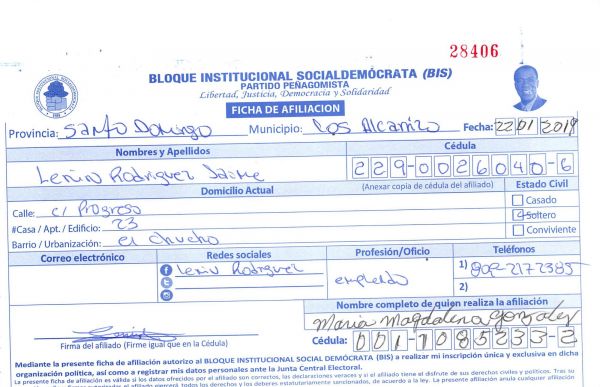 28406
BLOQUE INSTITUCIONAL SOCIALDEMÓCRATA (BIS)
PARTIDO PEÑAGOMISTA
Libertad, Justicia, Democracia y Solidaridad
FICHA DE AFILIACION
Provincia: Santo Domingo Municipio: Los Alcarrizo Fecha: 22/01/2019
Nombres y Apellidos Cédula
Lenin Rodriguez Jaime 229-0026040-6
Domicilio Actual (Anexar copia de cédula del afiliado) Estado Civil
Calle: c/ Progreso Casado
#Casa / Apt. / Edificio: 23 Soltero
Barrio / Urbanización: el chucho Conviviente
Correo electrónico Redes sociales Profesión/Oficio Teléfonos
Lenin Rodriguez empleado 1) 809-2172385
2)
Nombre completo de quien realiza la afiliación
Maria Magdalena Gonzalez
Firma del afiliado (Firme igual que en la Cédula) Cédula: 001-1085233-2
Mediante la presente ficha de afiliación autorizo al BLOQUE INSTITUCIONAL SOCIAL DEMÓCRATA (BIS) a realizar mi inscripción única y exclusiva en dicha
organización política, así como a registrar mis datos personales ante la Junta Central Electoral.
La presente ficha de afiliación es válida si los datos ofrecidos por el afiliado son correctos, las declaraciones veraces y si el afiliado tiene el disfrute de sus derechos civiles y políticos. Tras su